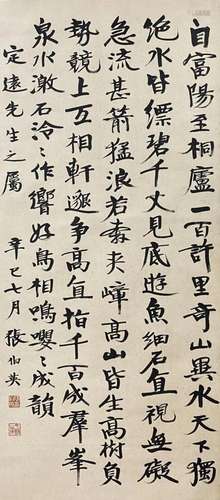 自富陽至桐廬一百許里奇山異水天下獨
絶水皆縹碧千丈見底遊魚細石直視無礙
急流甚箭猛浪若奔夹嶂高山皆生高樹負
勢競上互相軒邈争高直指千百成羣峯
泉水激石泠〻作響好鳥相鳴嚶〻成韻
定遠先生之屬
辛巳七月張伯英